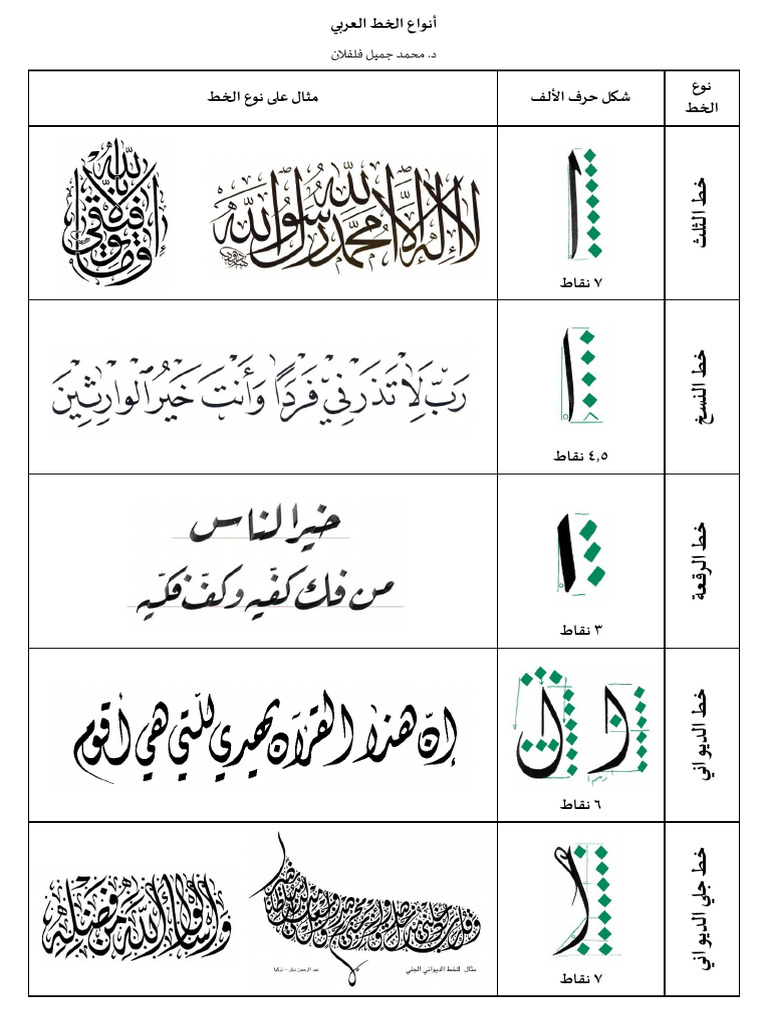 أنواع الخط العربي
د. محمد جميل فلفلان
نوع الخط
شكل حرف الألف
مثال على نوع الخط
خط الثلث
٧ نقاط
لا إله إلا الله محمد رسول الله
وما توفيقي إلا بالله
خط النسخ
٤,٥ نقاط
رَبِّ لَا تَذَرْنِي فَرْدًا وَأَنتَ خَيْرُ الْوَارِثِينَ
خط الرقعة
٣ نقاط
خير الناس
من فك كفّيه وكفّ فكّيه
خط الديواني
٦ نقاط
إنّ هذا القرآن يهدي للّتي هي أقوم
خط جلي الديواني
٧ نقاط
واسألوا الله من فضله
مثال للخط الديواني الجلي